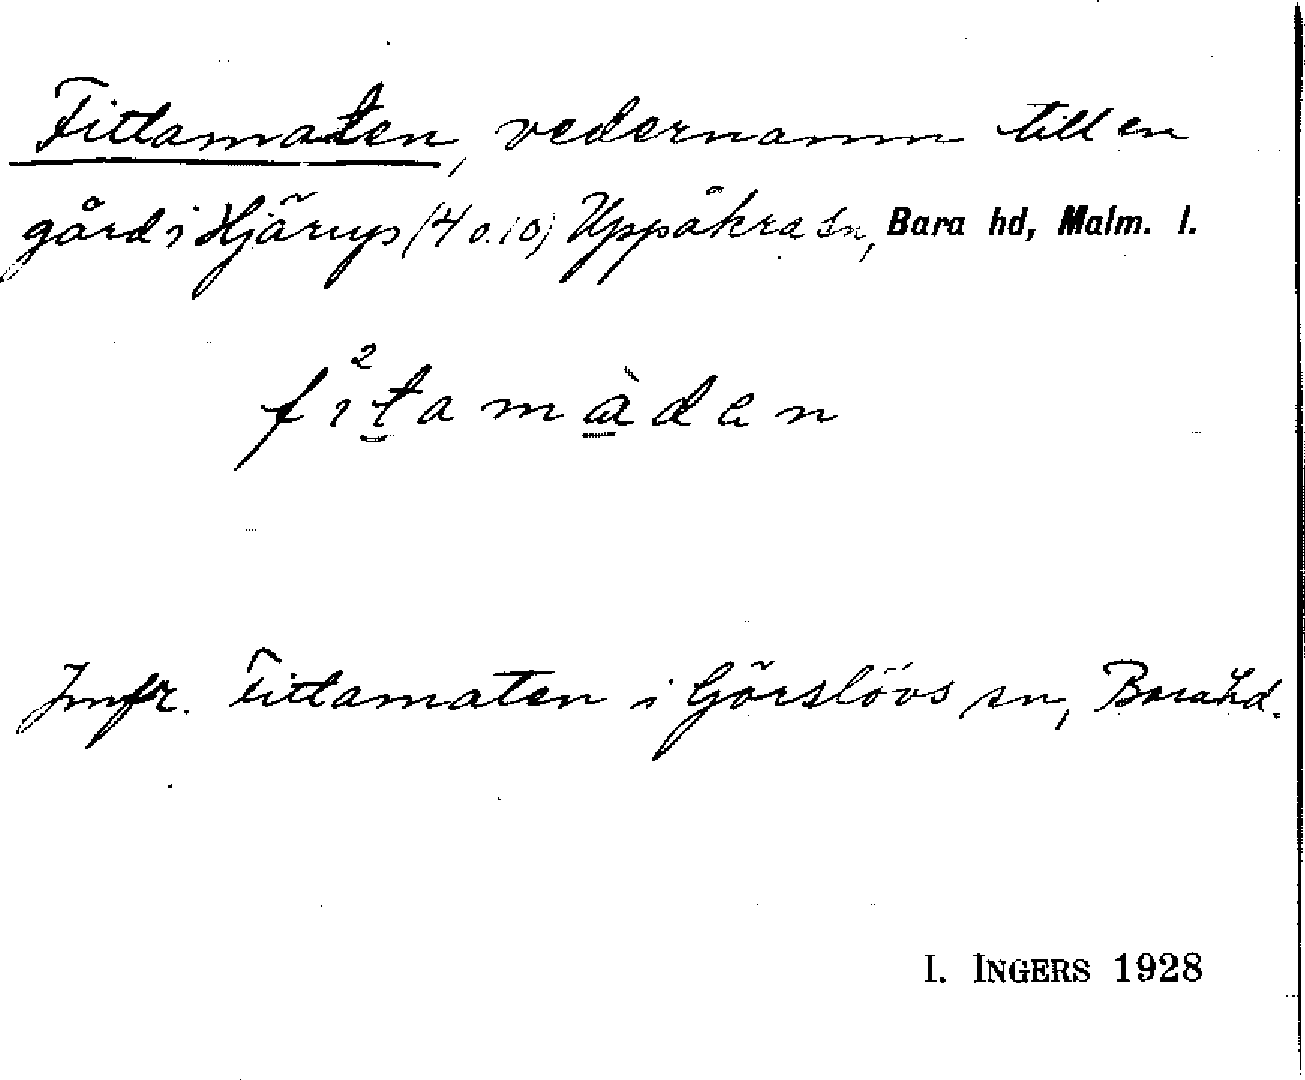 Fittamaten, vedernamn till en
gård i Hjärup (4 o. 10) Uppåkra sn, Bara hd, Malm. l.
fi²tamàden
Jmfr. Fittamaten i Görslövs sn, Bara hd.
I. INGERS 1928